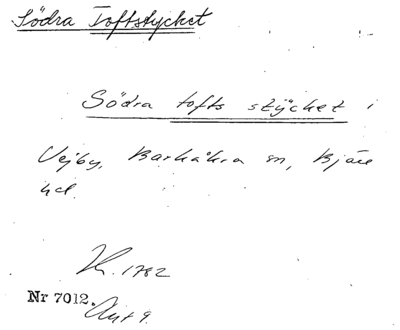 Södra Toftstycket
Södra tofts stycket i
Vejby, Barkåkra sn, Bjäre
hd.
1782
Nr 7012.
Akt 9.